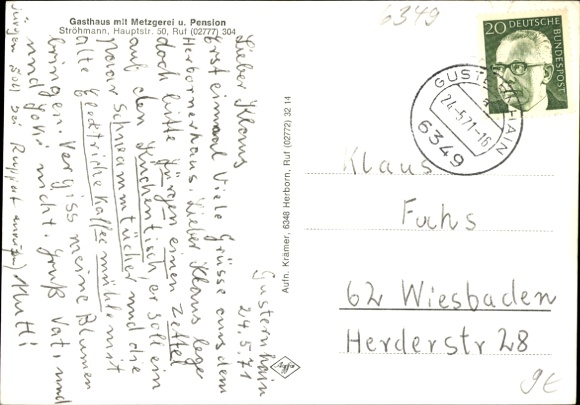 Gasthaus mit Metzgerei u. Pension
Ströhmann, Hauptstr. 50, Ruf (02777) 304
6349
20 DEUTSCHE
BUNDESPOST
GUSTERNHAIN
24.-5.71-16
6349
Gusternhain
24.5.71
Lieber Klaus
Erst einmal viele Grüsse aus dem
Herbornerhaus. Lieber Klaus lege
doch bitte Jürgen einen Zettel
auf den Küchentisch, er soll ein
Paar Schwammtücher und die
alte Elecktrische Kaffeemühle mit
bringen. Vergiss meine Blumen
und Joki nicht. Gruß Vati und
Mutti
Jürgen soll bei Ruppert anrufen)
Aufn. Krämer, 6348 Herborn, Ruf (02772) 32 14
Klaus
Fuchs
62 Wiesbaden
Herderstr 28